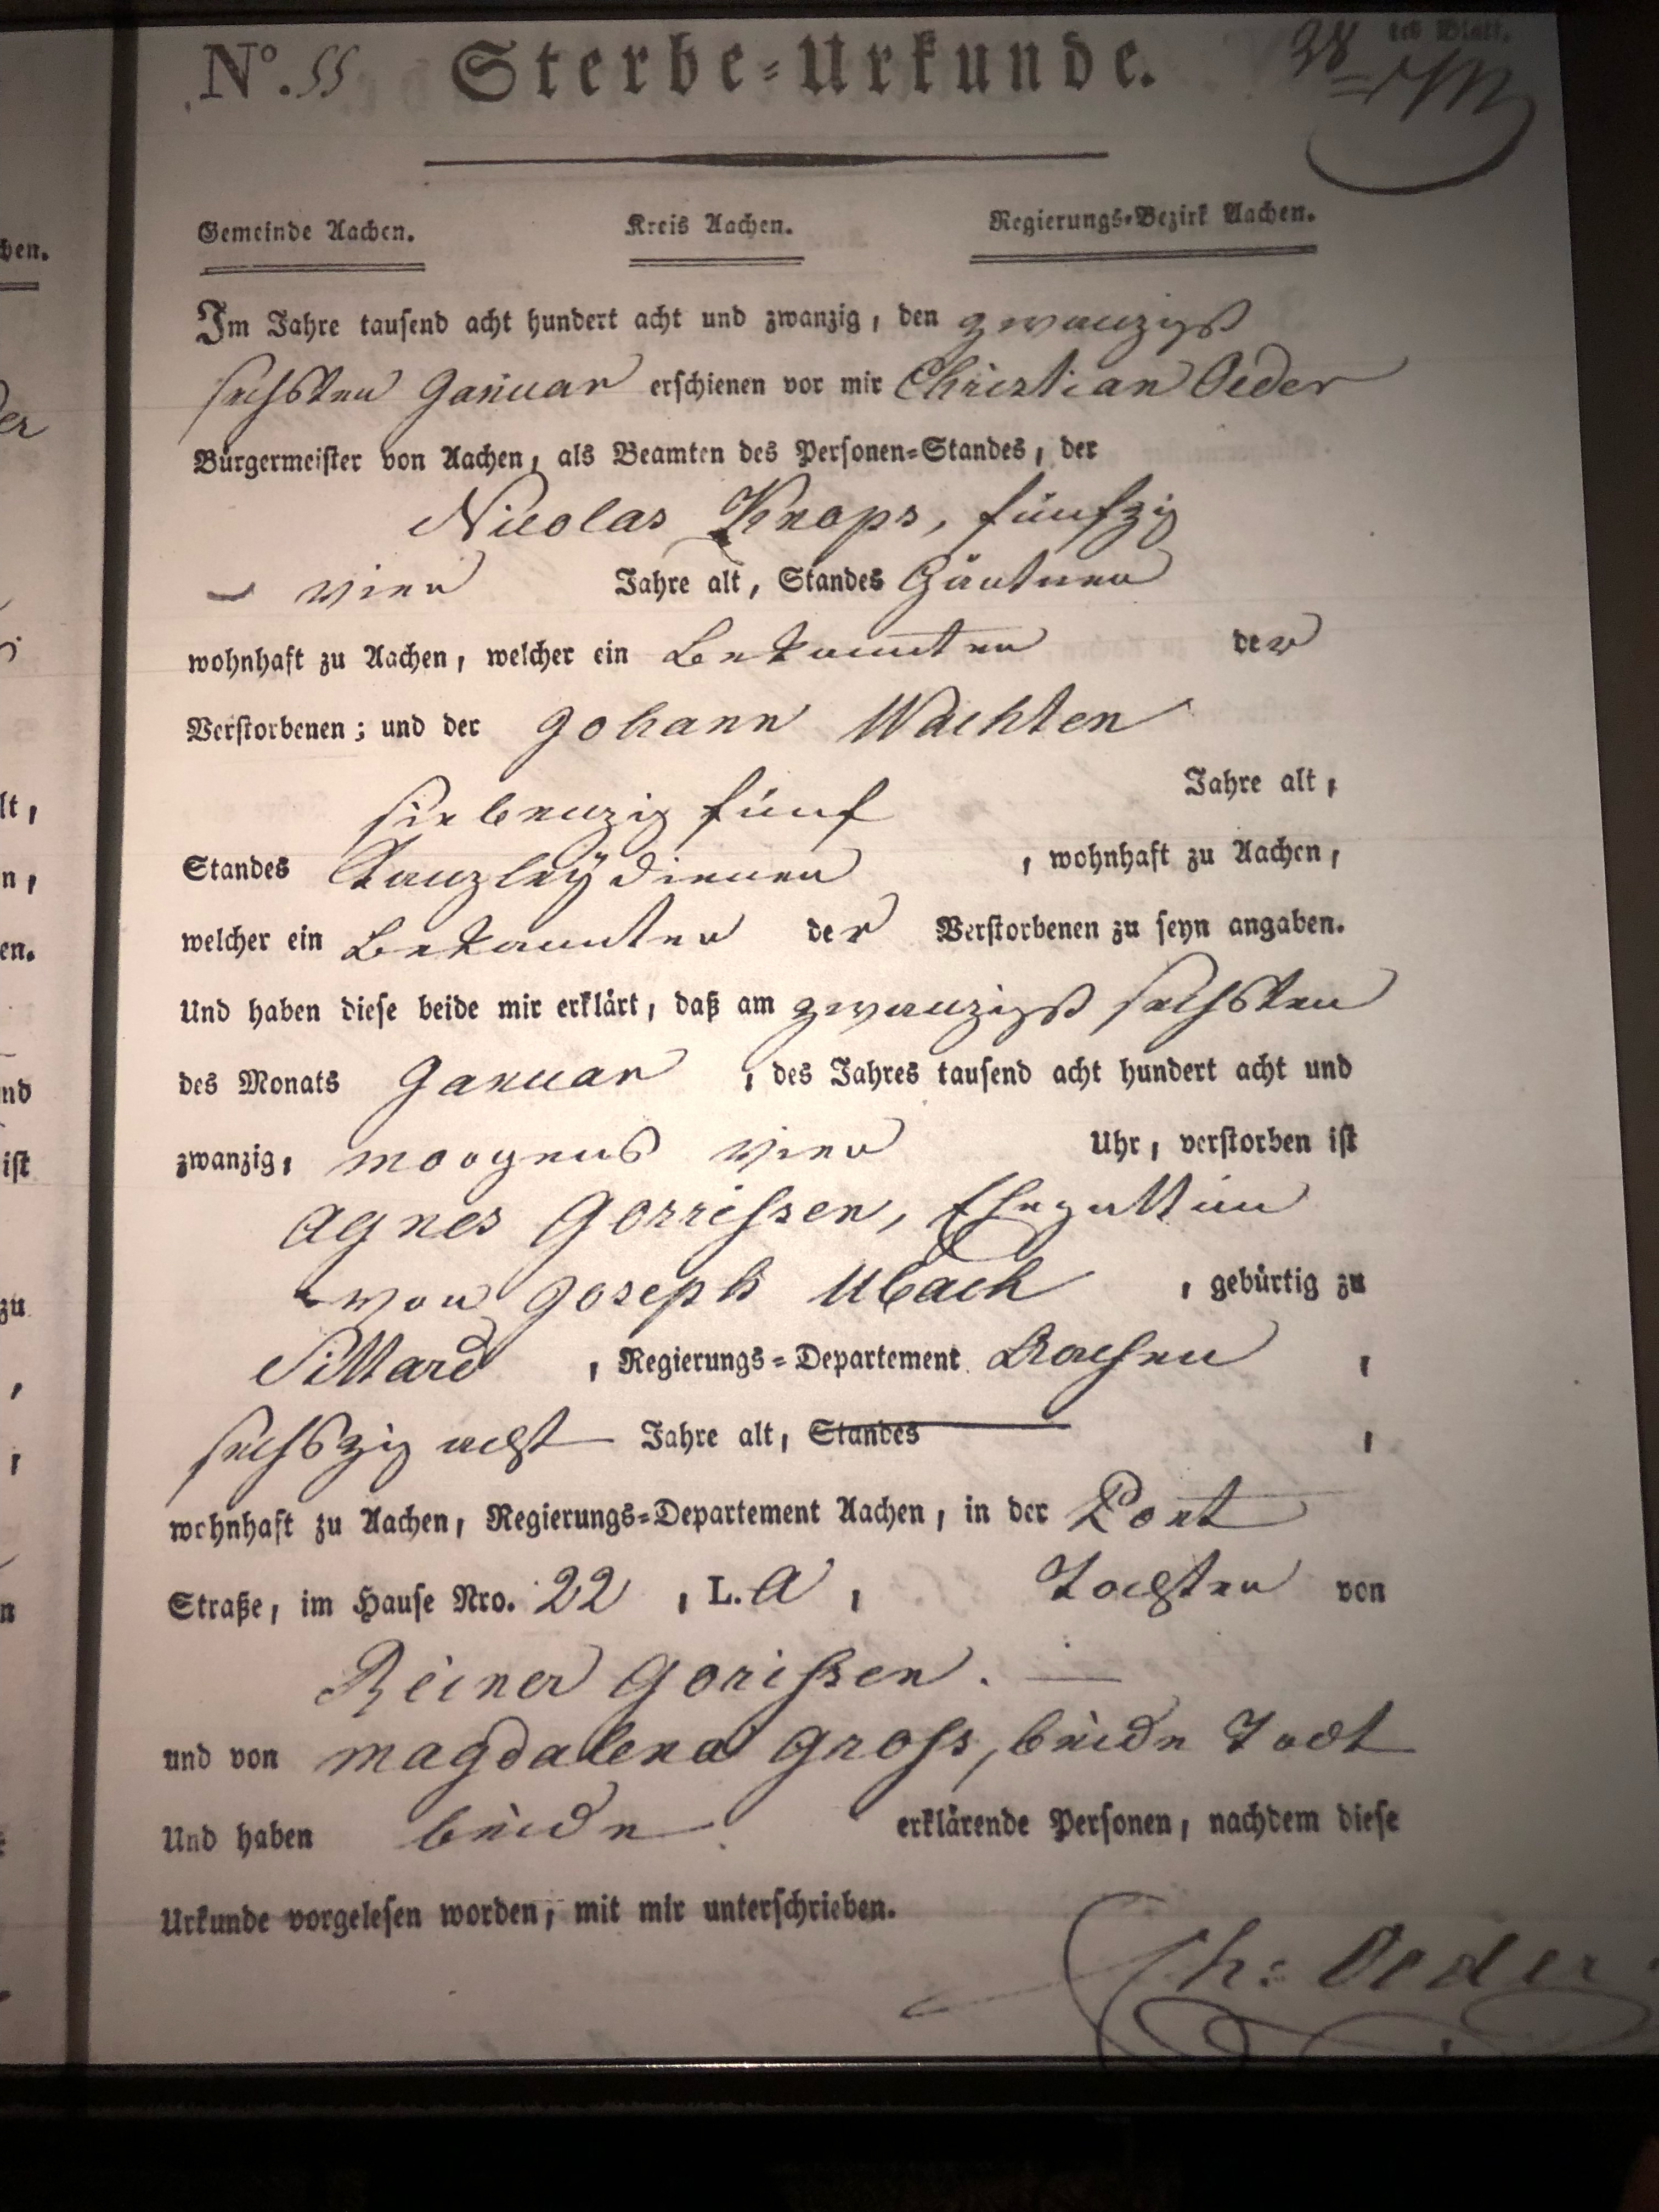 No. 55 Sterbe-Urkunde. 28
tes Blatt.
Gemeinde Aachen. Kreis Aachen. Regierungs-Bezirk Aachen.
Im Jahre tausend acht hundert acht und zwanzig, den zwanzigst
sechsten Januar erschienen vor mir Christian Oeder
Bürgermeister von Aachen, als Beamten des Personen-Standes, der
Nicolas Knops, fünfzig
vier Jahre alt, Standes Gärtner
wohnhaft zu Aachen, welcher ein Bekannter der
Verstorbenen; und der Johann Wachten
siebenzig fünf Jahre alt,
Standes Kanzleÿdiener, wohnhaft zu Aachen,
welcher ein Bekannter der Verstorbenen zu seyn angaben.
Und haben diese beide mir erklärt, daß am zwanzigst sechsten
des Monats Januar, des Jahres tausend acht hundert acht und
zwanzig, morgens vier Uhr, verstorben ist
Agnes Gorrissen, Ehegattin
von Joseph Ubach, gebürtig zu
Sittard, Regierungs-Departement Aachen,
sechszig acht Jahre alt, Standes,
wohnhaft zu Aachen, Regierungs-Departement Aachen, in der Pont
Straße, im Hause Nro. 22, L. A, Tochter von
Reiner Gorissen.
und von Magdalena Gross, beide Todt
Und haben beide erklärende Personen, nachdem diese
Urkunde vorgelesen worden, mit mir unterschrieben.
Ch: Oeder
hen.
er
lt,
n,
en.
nd
ist
zu
,
,
n